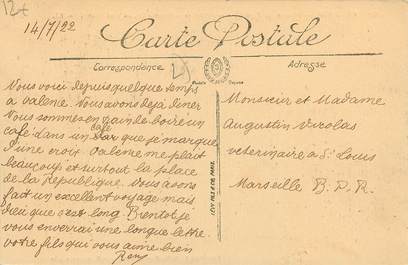 12€
14/7/22
Carte Postale
Correspondance
Adresse
Nous voici depuis quelque temps
à Valence. Nous avons dejà diner
Nous sommes en train de boire un
café
café dans un bar que je marque
d'une croix Valence me plait
beaucoup et surtout la place
de la République. Nous avons
fait un excellent voyage mais
dieu que c'est long. Bientot je
vous enverrai une longue lettre.
votre fils qui vous aime bien
Remy
LÉVY FILS & Cie PARIS
Monsieur et Madame
Augustin
veterinaire à St Louis
Marseille B. D. R.